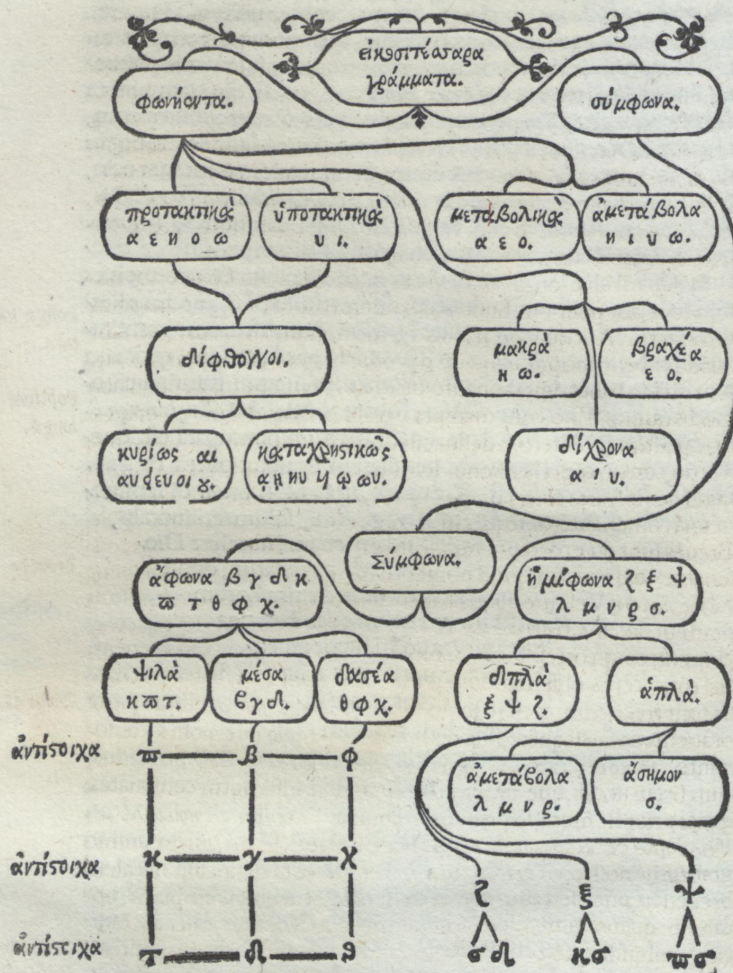 εἰκοσιτέσσαρα
γράμματα.
φωνήοντα.
σύμφωνα.
προτακτικὰ
α ε η ο ω
ὑποτακτικὰ
υ ι.
μεταβολικὰ
α ε ο.
ἀμετάβολα
η ι υ ω.
δίφθογγοι.
μακρὰ
η ω.
βραχέα
ε ο.
κυρίως αι
αυ ει ευ οι ου.
καταχρηστικῶς
ᾳ ῃ ηυ υι ῳ ωυ.
δίχρονα
α ι υ.
Σύμφωνα.
ἄφωνα β γ δ κ
π τ θ φ χ.
ἡμίφωνα ζ ξ ψ
λ μ ν ρ σ.
ψιλὰ
κ π τ.
μέσα
β γ δ.
δασέα
θ φ χ.
διπλὰ
ξ ψ ζ.
ἁπλὰ.
ἀντίστοιχα π β φ
ἀμετάβολα
λ μ ν ρ.
ἄσημον
σ.
ἀντίστοιχα κ γ χ
ζ ξ ψ
ἀντίστοιχα τ δ θ
σ δ κ σ π σ